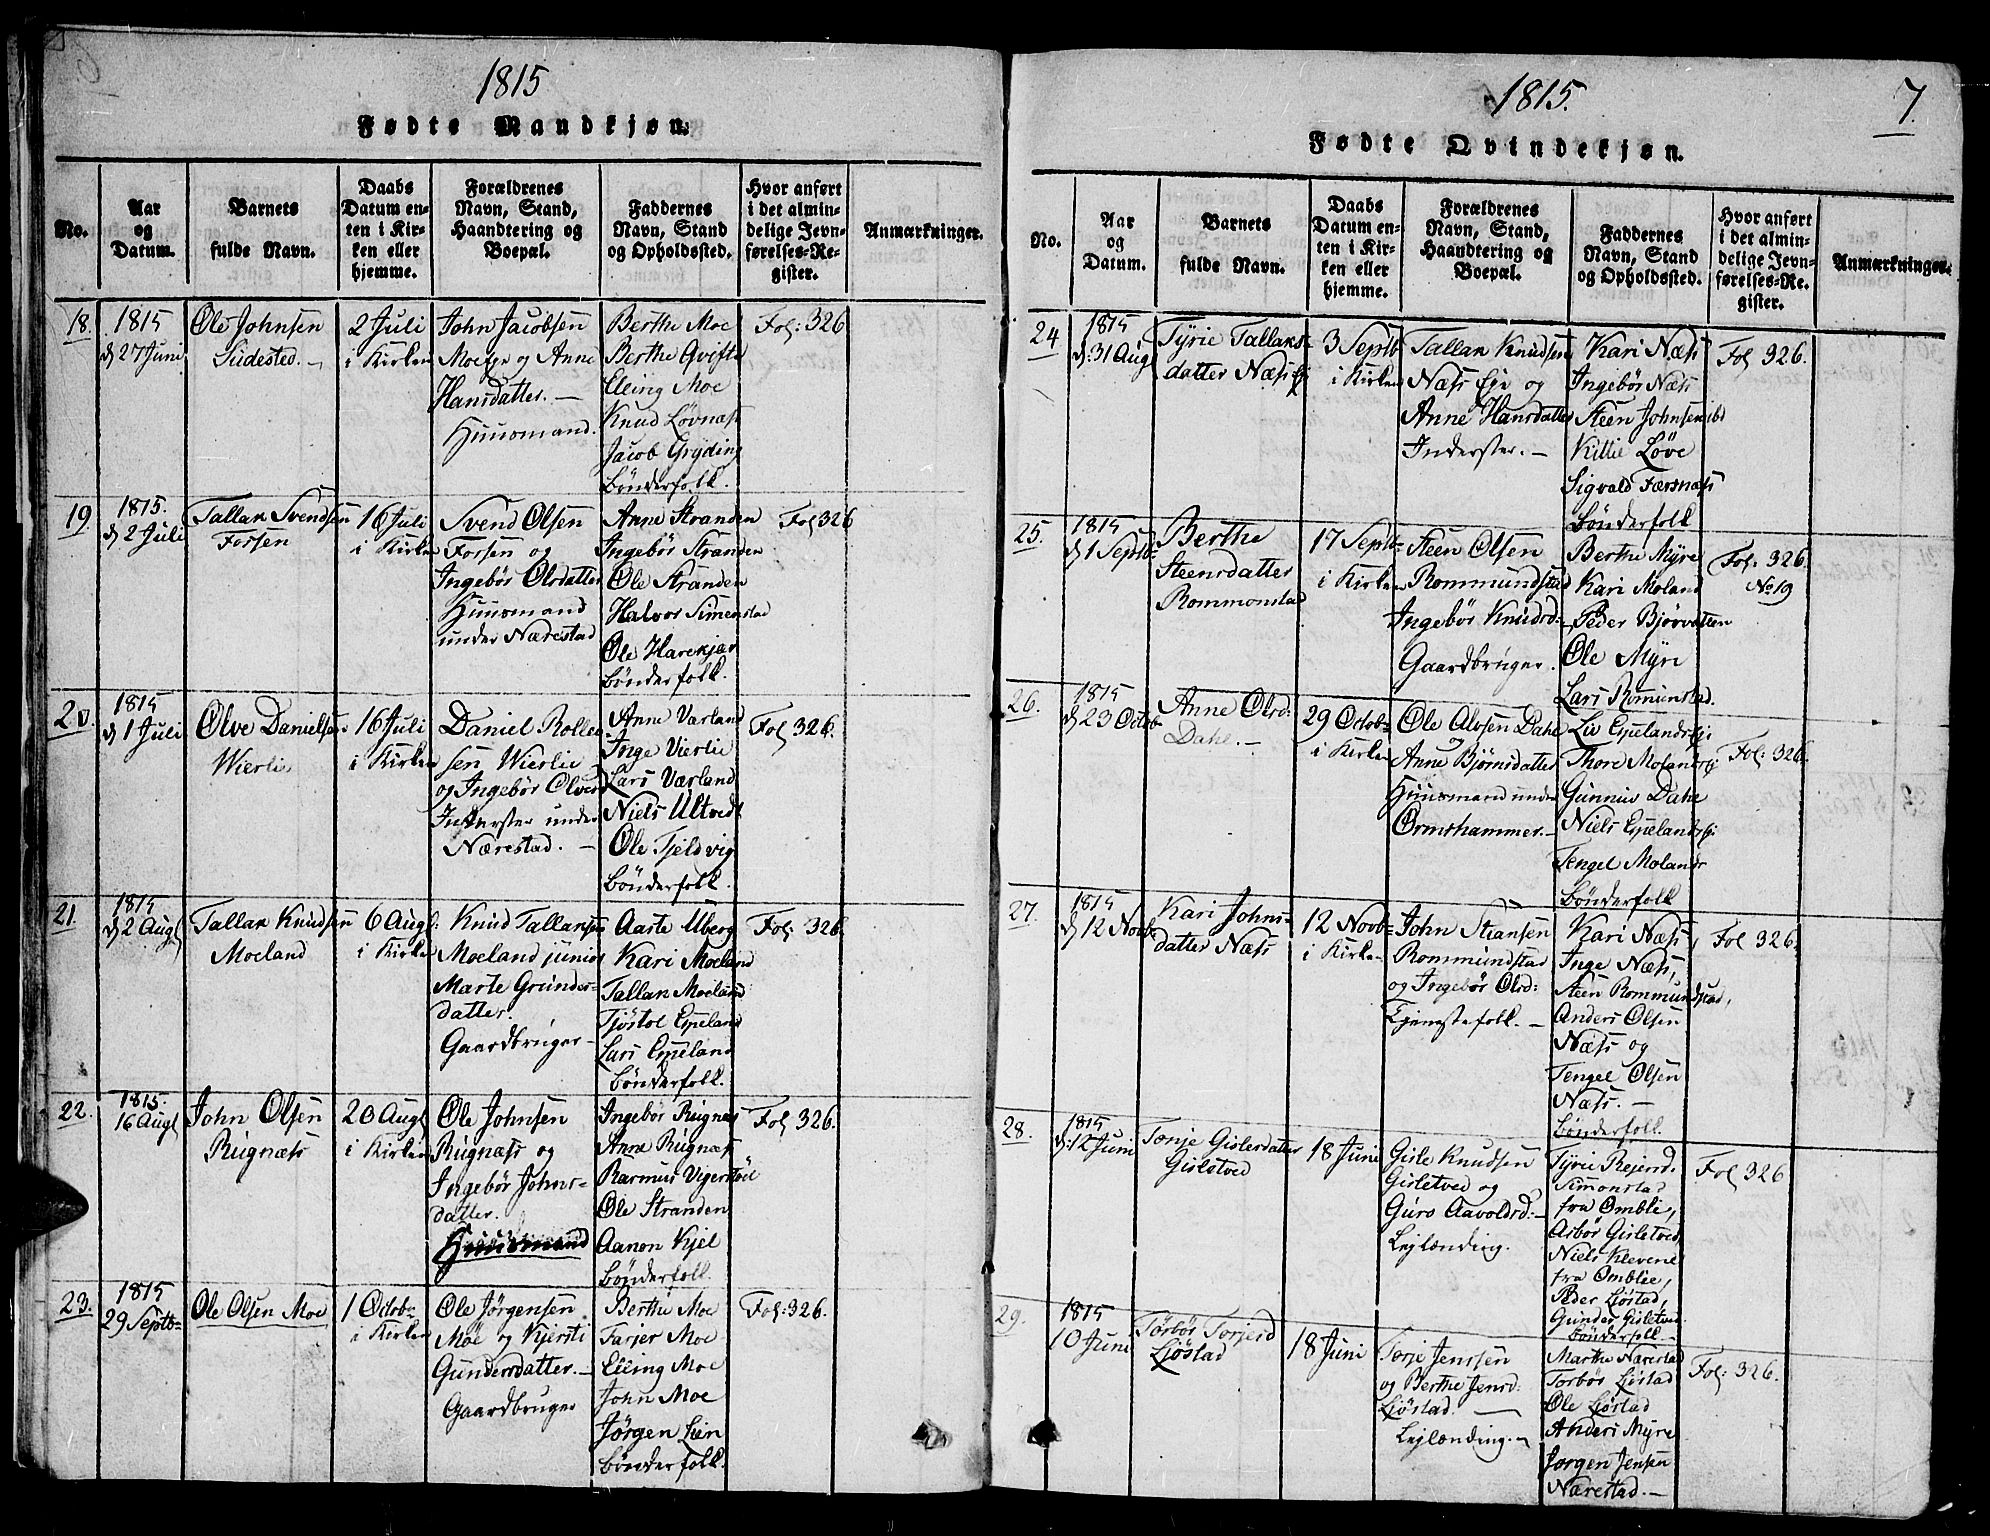 1815
Fødte Mandkjøn.
No.
Aar
og
Datum.
Barnets
fulde Navn.
Daabs
Datum en-
ten i Kir-
ken eller
hjemme.
Forældrenes
Navn, Stand,
Haandtering og
Boepæl.
Faddernes
Navn, Stand
og Opholdssted.
Hvor anført
i det almin-
delige Jevn-
førelses-Re-
gister.
Anmærkninger.
18.
1815
d 27 Juni
Ole Johnsen
Südested.
2 Juli
i Kirken
John Jacobsen
Moeeje og Anne
Hansdatter. —
Huusmand.
Berthe Moe
Berthe Qvifte
Elling Moe
Knud Løvnæss
Jacob Gryding
Bönderfolk.
Fol: 326
19.
1815.
d 2 Juli
Tallak Svendsen
Forsen
16 Juli
i Kirken
Svend Olsen
Forsen og
Ingebör Olsdatter
Huusmand
under Nærestad
Anne Stranden
Ingebör Stranden
Ole Stranden
Halvor Simenstad
Ole Harekjær
Bönderfolk.
Fol 326
20.
1815
d 1 Juli
Olve Danielsen
Wierlie
16 Juli
i Kirken
Daniel Rolle-
sen Wierlie
og Ingebör Olvesd
Inderster under
Nærestad. —
Anne Varland
Inge Vierlie
Lars Værland
Niels Ultvedt
Ole Tjeldvig
Bönderfolk.
Fol 326.
21.
1815
d 2 Augt
Tallak Knudsen
Moeland
6 Augt:
i Kirken
Knud Tallaksen
Moeland junior
Marte Gunders-
datter.
Gaardbruger —
Aaste Uberg
Kari Moeland
Tallak Moeland
Tjöstol Epeland
Lars Epeland
Bönderfolk.
Fol: 326.
22.
1815.
16 Augt
John Olsen
Rugnæss
20 Augt
i Kirken
Ole Johnsen
Rugnæss og
Ingebör Johns-
datter.
Huusmand
Ingebör Rugnæs
Anne Rugnæss
Rasmus Vigerstöil
Ole Stranden
Aanon Kjel
Bönderfolk.
Fol 326.
23.
1815
29 Septb
Ole Olsen Moe
1 Octobr
i Kirken
Ole Jörgensen
Moe og Kjersti
Gundersdatter. —
Gaardbruger
Berthe Moe
Tarjer Moe
Elling Moe
John Moe
Jörgen Lien
Bönderfolk.
Fol: 326.
1815.
7.
Fødte Qvindekjøn.
No.
Aar
og
Datum.
Barnets
fulde Navn.
Daabs
Datum en-
ten i Kir-
ken eller
hjemme.
Forældrenes
Navn, Stand,
Haandtering og
Boepæl.
Faddernes
Navn, Stand
og Opholdssted.
Hvor anført
i det almin-
delige Jevn-
førelses-Re-
gister.
Anmærkninger.
24
1815
d: 31 Augt
Tyrie Tallaks-
datter Næss Ej
3 Septb
i Kirken
Tallak Knudsen
Næss Eje og
Anne Hansdatter
Inderster. —
Kari Næss
Ingebör Næss
Steen Johnsen ibd
Killie Löve
Sigvald Færsnæss
Bönderfolk
Fol 326.
25.
1815
d 1 Septb
Berthe
Steensdatter
Rommonstad
17 Septb
i Kirken
Steen Olsen
Rommundstad
Ingebör Knudsd:
Gaardbruger.
Berthe Myre
Kari Moland
Peder Bjørvatten
Ole Myre
Lars Romunstad.
Fol: 326.
No 19
26.
1815
d 23 Octob
Anne Olsd:
Dahe. —
29 Octob
i Kirken
Ole Alvsen Dahe
Anne Bjørnsdatter
Huusmand under
Ormshammer. —
Liv Epelandsej
Thore Molandsej
Gunnuv Dahe
Niels Epelandsej:
Tengel Molands
Bönderfolk
Fol: 326
27.
1815
d 12 Novb
Kari Johns-
datter Næss
12 Novb
i Kirken
John Stiansen
Rommundstad
og Ingebör Olsd:
Tjenestefolk. —
Kari Næss,
Inge Næss,
Steen Rommundstad,
Anders Olsen
Næss og
Tengel Olsen
Næss. —
Bönderfolk.
Fol 326.
28.
1815
d: 12 Juni
Tonje Gislesdatter
Gislstved
18 Juni
Gisle Knudsen
Gisletved og
Guro Aavoldsd: —
Lejlænding.
Tyrie Rejersd.
Simonstad
fra Omblie,
Asbör Gisletved
Niels Klevene
fra Omblie,
Peder Ljøstad,
Gunder Gisletved
Bönderfolk —
Fol 326
29.
1815
10 Juni
Törbör Torjesd
Ljöstad
18 Juni
Torje Jenssen
og Berthe Jensd:
Ljöstad. —
Lejlænding. —
Marthe Nærestad
Torbör Ljöstad
Ole Ljöstad
Anders Myre
Jørgen Jensen
Nærestad. —
Fol: 326.